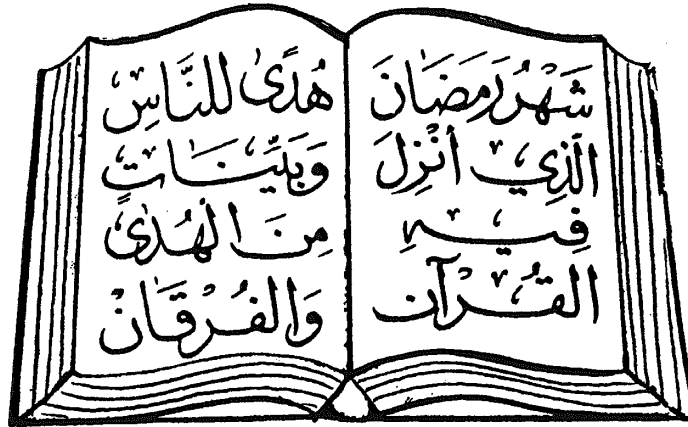 شَهْرُ رَمَضَانَ
الَّذِي أُنْزِلَ
فِيهِ
القُرْآن
هُدًى للنَّاسِ
وَبَيِّنَاتٍ
مِنَ الْهُدَى
وَالفُرْقَانْ